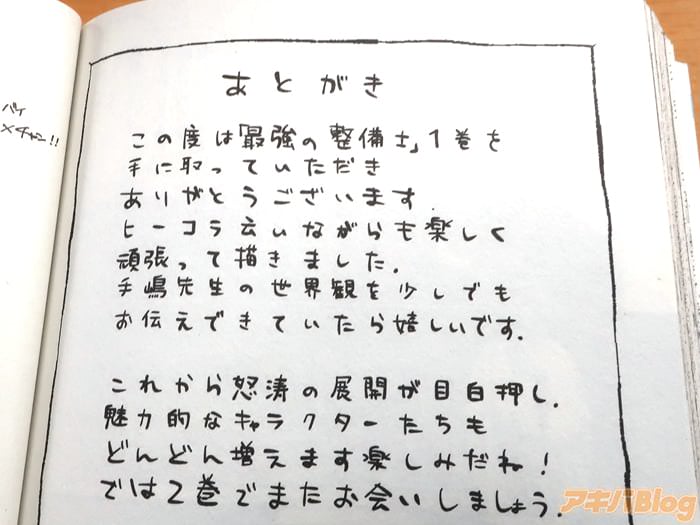 バイ
×チャン!!
あとがき
この度は「最強の整備士」1巻を
手に取っていただき
ありがとうございます.
ヒーコラ云いながらも楽しく
頑張って描きました.
手嶋先生の世界観を少しでも
お伝えできていたら嬉しいです.
これから怒涛の展開が目白押し.
魅力的なキャラクターたちも
どんどん増えます楽しみだね!
では2巻でまたお会いしましょう.
アキバBlog